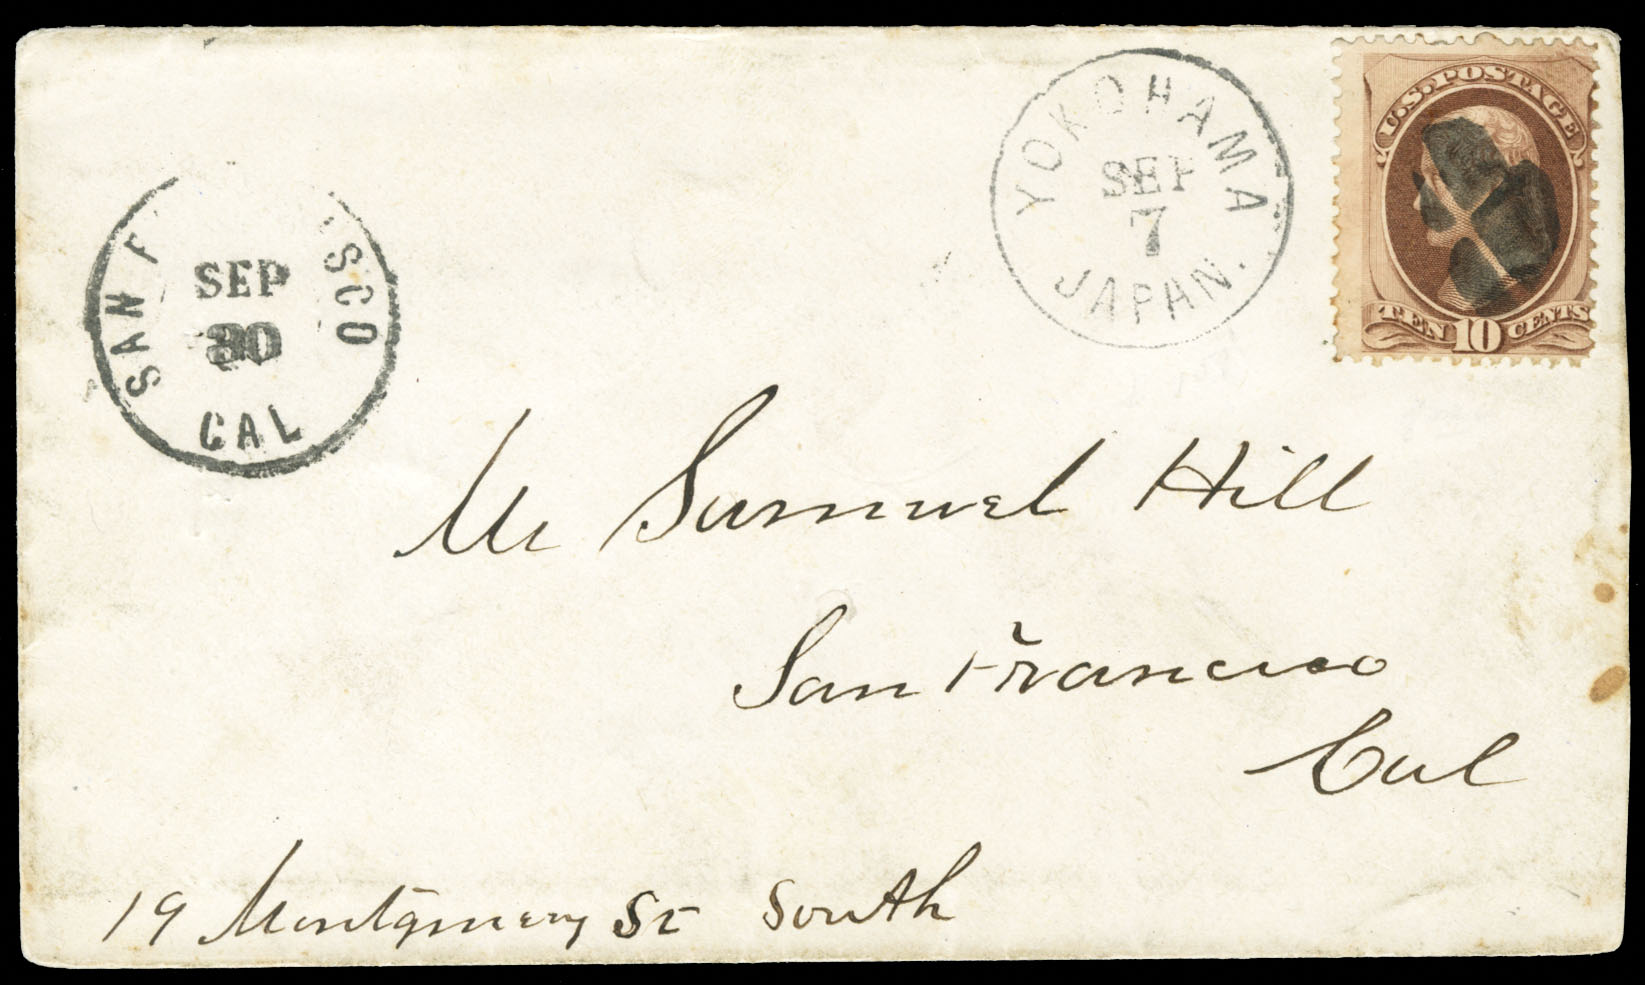 YOKOHAMA
SEP
7
JAPAN.
U.S. POSTAGE
TEN 10 CENTS
SAN F ISCO
SEP
30
CAL
Mr Samuel Hill
San Francisco
Cal
19 Montgomery St South